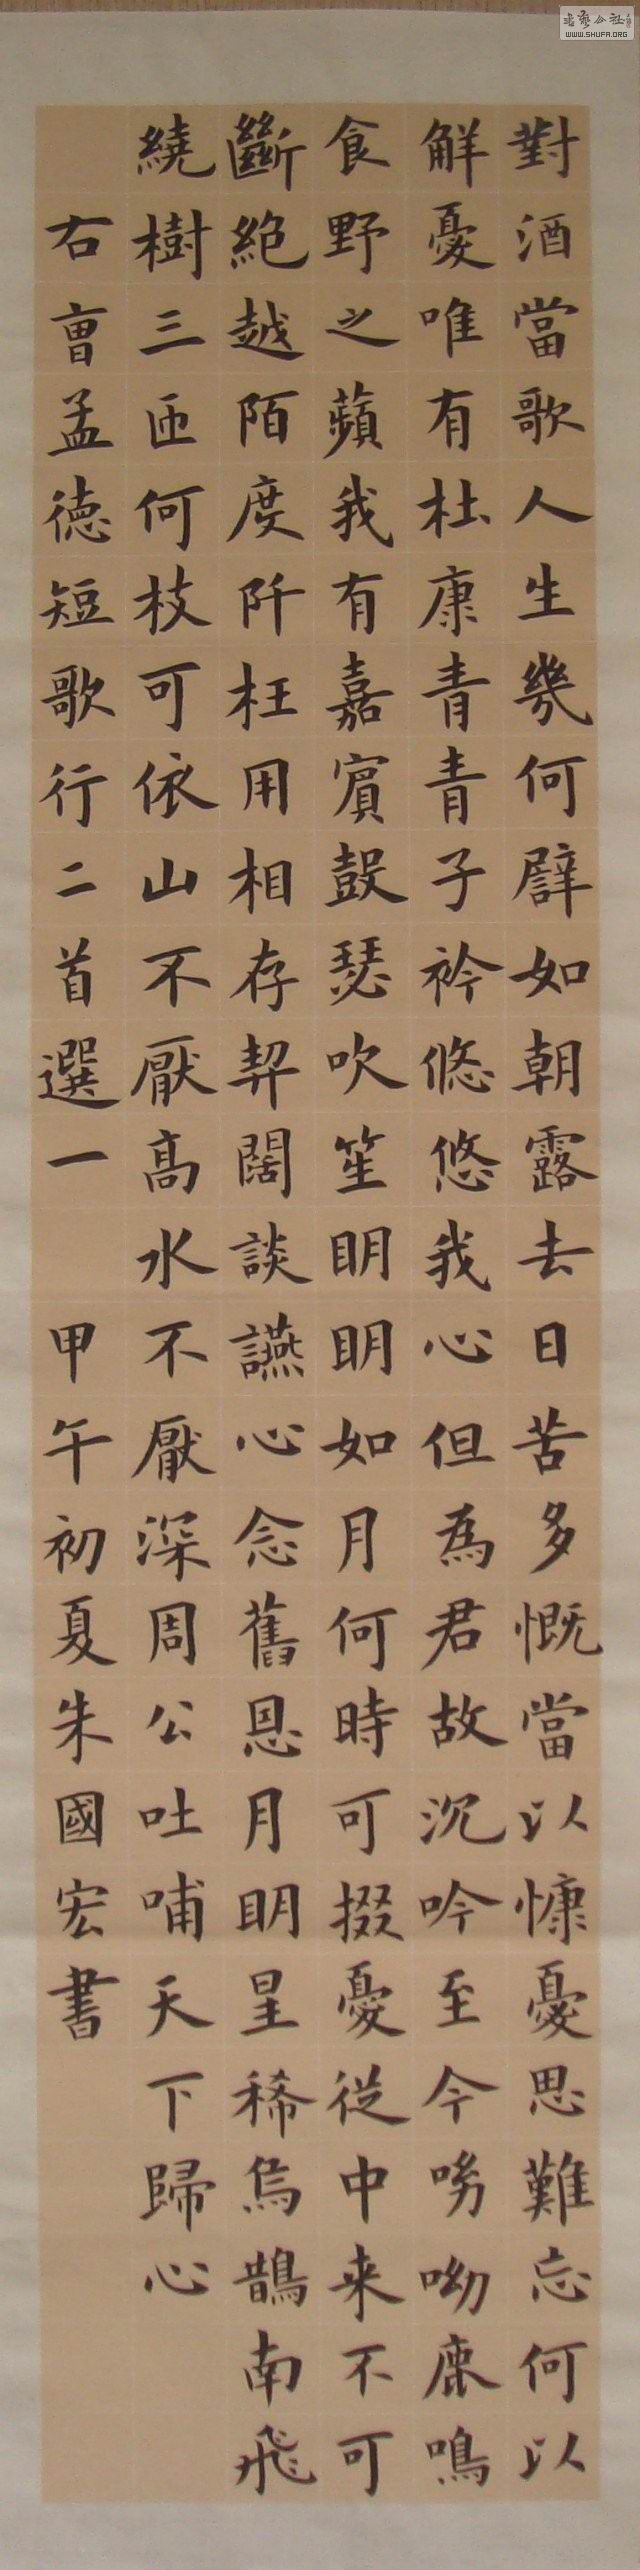 對酒當歌人生幾何譬如朝露去日苦多慨當以慷憂思難忘何以
解憂唯有杜康青青子衿悠悠我心但為君故沉吟至今呦呦鹿鳴
食野之蘋我有嘉賓鼓瑟吹笙明明如月何時可掇憂從中来不可
斷絕越陌度阡枉用相存契闊談讌心念舊恩月明星稀烏鵲南飛
繞樹三匝何枝可依山不厭高水不厭深周公吐哺天下歸心
右曹孟德短歌行二首選一 甲午初夏朱國宏書
書藝公社
WWW.SHUFA.ORG